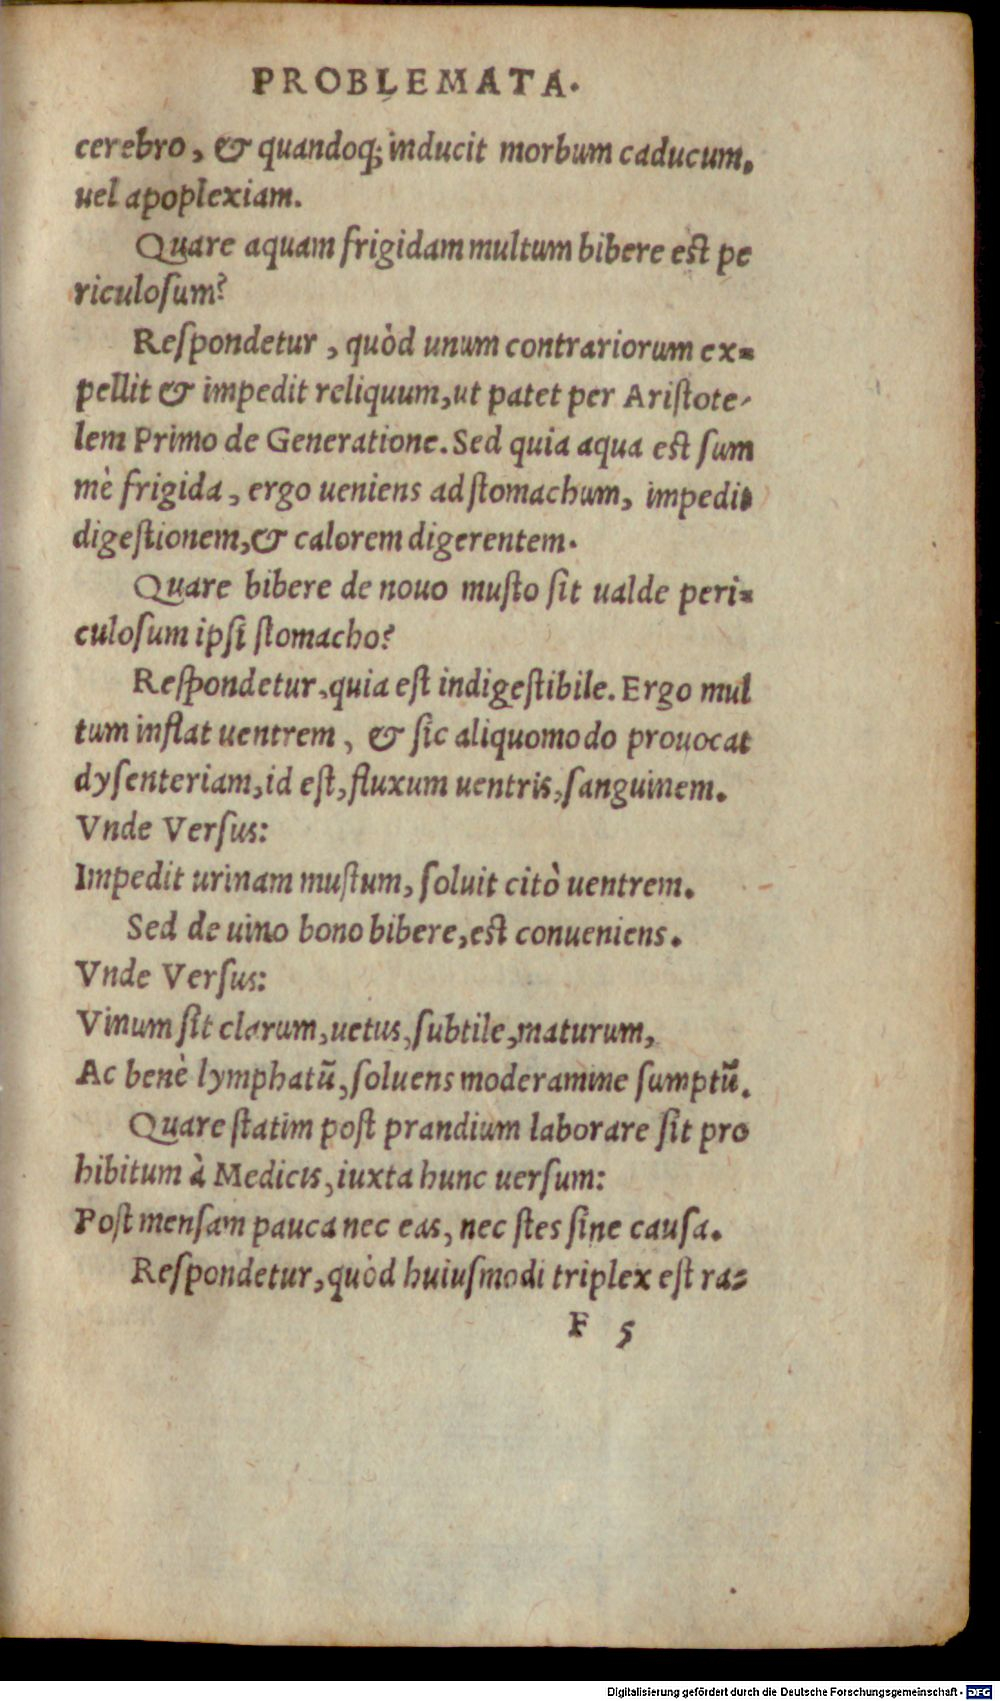 PROBLEMATA.
cerebro, & quandoq; inducit morbum caducum,
uel apoplexiam.
Quare aquam frigidam multum bibere est pe
riculosum?
Respondetur, quòd unum contrariorum ex=
pellit & impedit reliquum, ut patet per Aristote-
lem Primo de Generatione. Sed quia aqua est sum
mè frigida, ergo ueniens ad stomachum, impedit
digestionem, & calorem digerentem.
Quare bibere de nouo musto sit ualde peri=
culosum ipsi stomacho?
Respondetur, quia est indigestibile. Ergo mul
tum inflat uentrem, & sic aliquomodo prouocat
dysenteriam, id est, fluxum uentris, sanguinem.
Vnde Versus:
Impedit urinam mustum, soluit citò uentrem.
Sed de uino bono bibere, est conueniens.
Vnde Versus:
Vinum sit clarum, uetus, subtile, maturum,
Ac benè lymphatū, soluens moderamine sumptū.
Quare statim post prandium laborare sit pro
hibitum à Medicis, iuxta hunc uersum:
Post mensam pauca nec eas, nec stes sine causa.
Respondetur, quòd huiusmodi triplex est ra=
F 5
Digitalisierung gefördert durch die Deutsche Forschungsgemeinschaft - DFG